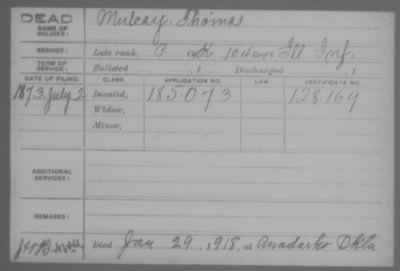 DEAD
NAME OF SOLDIER: Mulcay, Thomas
SERVICE: Late rank, P. Co K, Ill Inf.
TERM OF SERVICE: Enlisted , 1 Discharged , 1
DATE OF FILING. CLASS. APPLICATION NO. LAW. CERTIFICATE NO.
1873, July 2 Invalid, 185.073 128.169
Widow,
Minor,
ADDITIONAL SERVICES:
REMARKS:
Died Jan 29, 1918, at Anadarko Okla